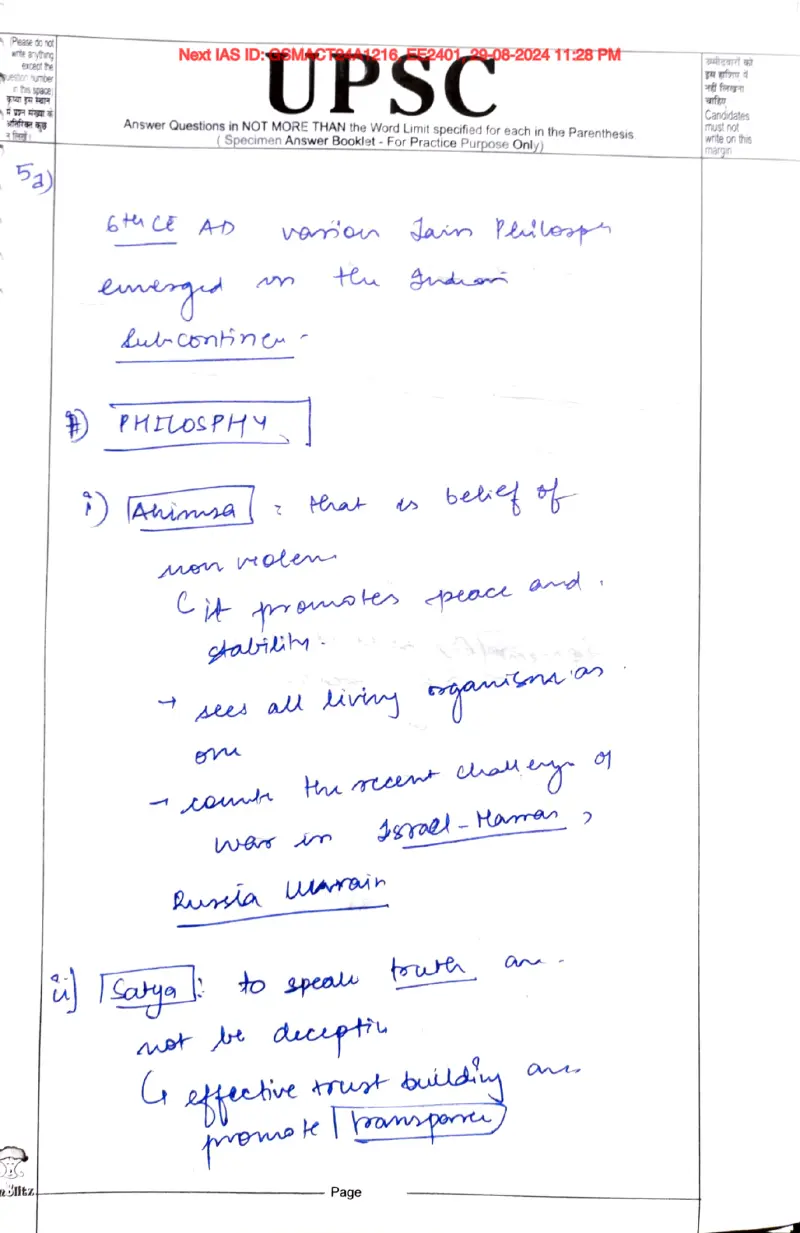 Next IAS ID: GSMACT24A1216_EE2401_29-08-2024 11:28 PM
UPSC
(Please do not
write anything
except the
question number
in this space)
कृपया इस स्थान
में प्रश्न संख्या के
अतिरिक्त कुछ
न लिखें।
उम्मीदवारों को
इस हाशिए में
नहीं लिखना
चाहिए
Candidates
must not
write on this
margin
Answer Questions in NOT MORE THAN the Word Limit specified for each in the Parenthesis
( Specimen Answer Booklet - For Practice Purpose Only)
5a)
6th CE AD various Jain Philosph
emerged in the Indian
Subcontinen
PHILOSPHY
i) Ahimsa : that is belief of
non violen
it promotes peace and
stability.
→ sees all living organisms as
one
→ counte the recent challenge of
war in Israel-Hamas,
Russia Ukrain
ii) Satya : to speak truth an
not be deceptiv
↳ effective trust building and
promote transparre
Page